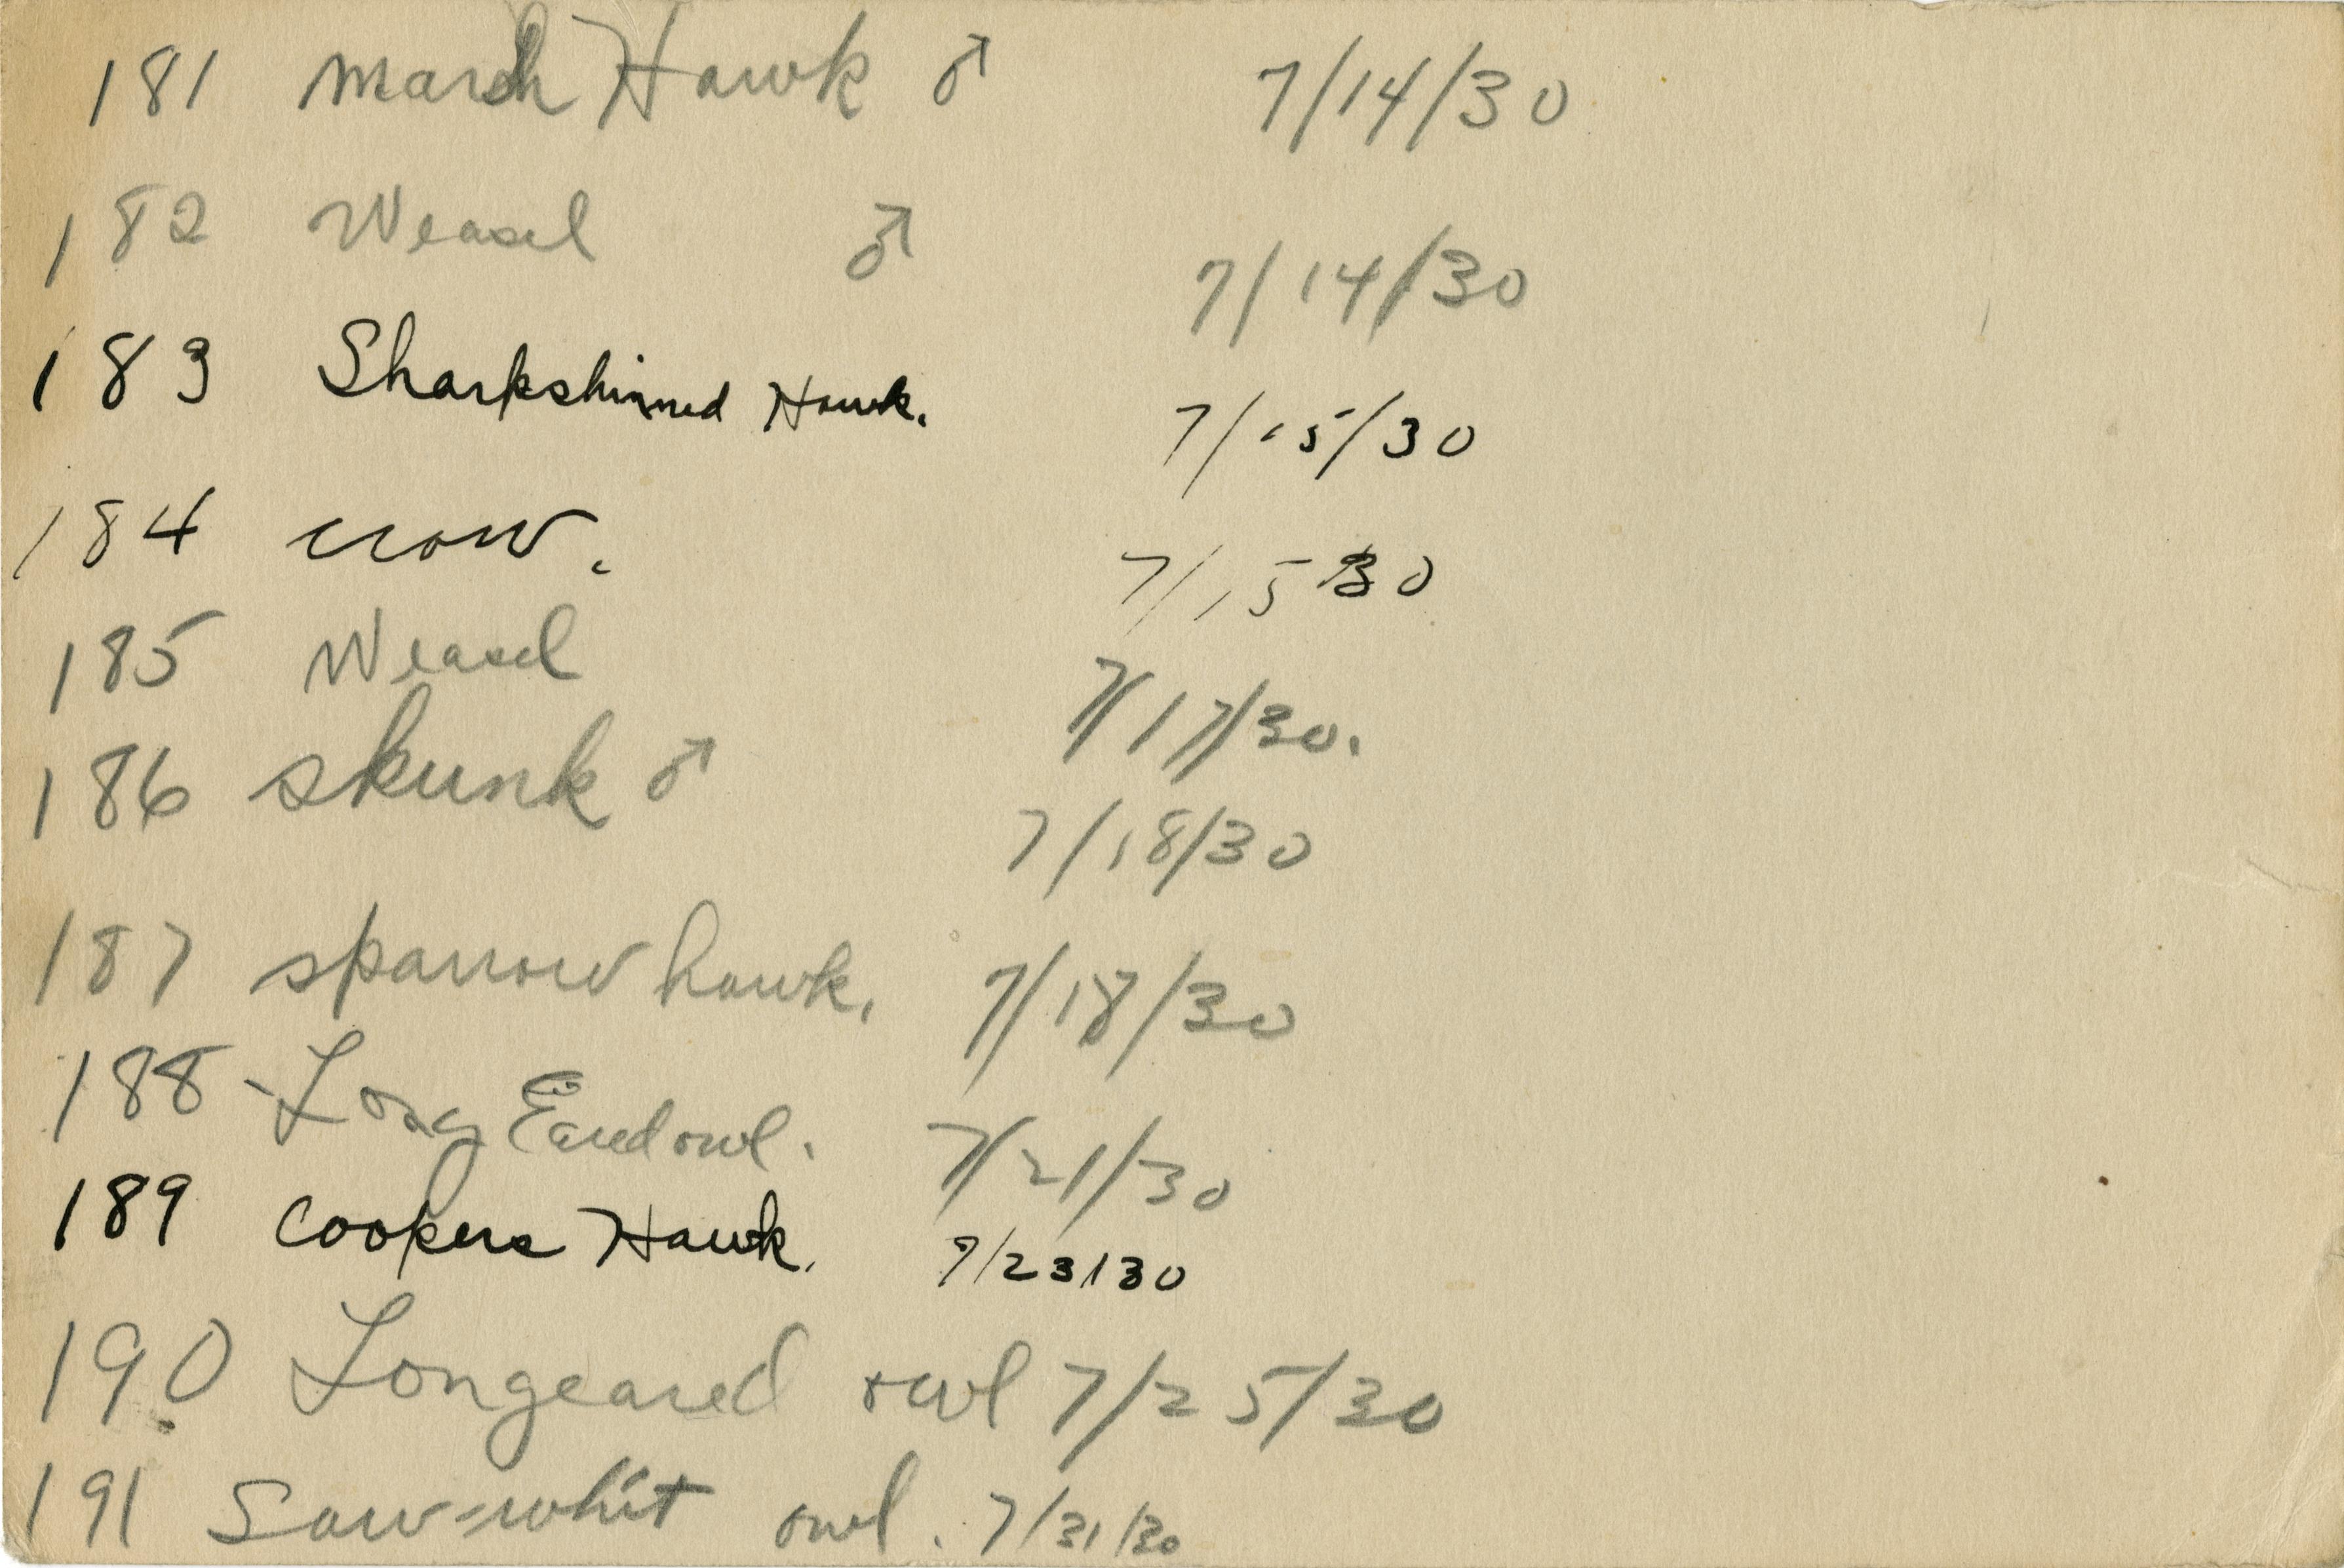 181 Marsh Hawk ♂ 7/14/30
182 Weasel ♂ 7/14/30
183 Sharkshinned Hawk. 7/15/30
184 crow. 7/15 30
185 Weasel 7/17/30.
186 skunk ♂ 7/18/30
187 sparrow hawk. 7/18/30
188 - Long Eared owl. 7/21/30
189 Coopers Hawk. 7/23/30
190 Longeared owl 7/25/30
191 Saw-whit owl. 7/31/30